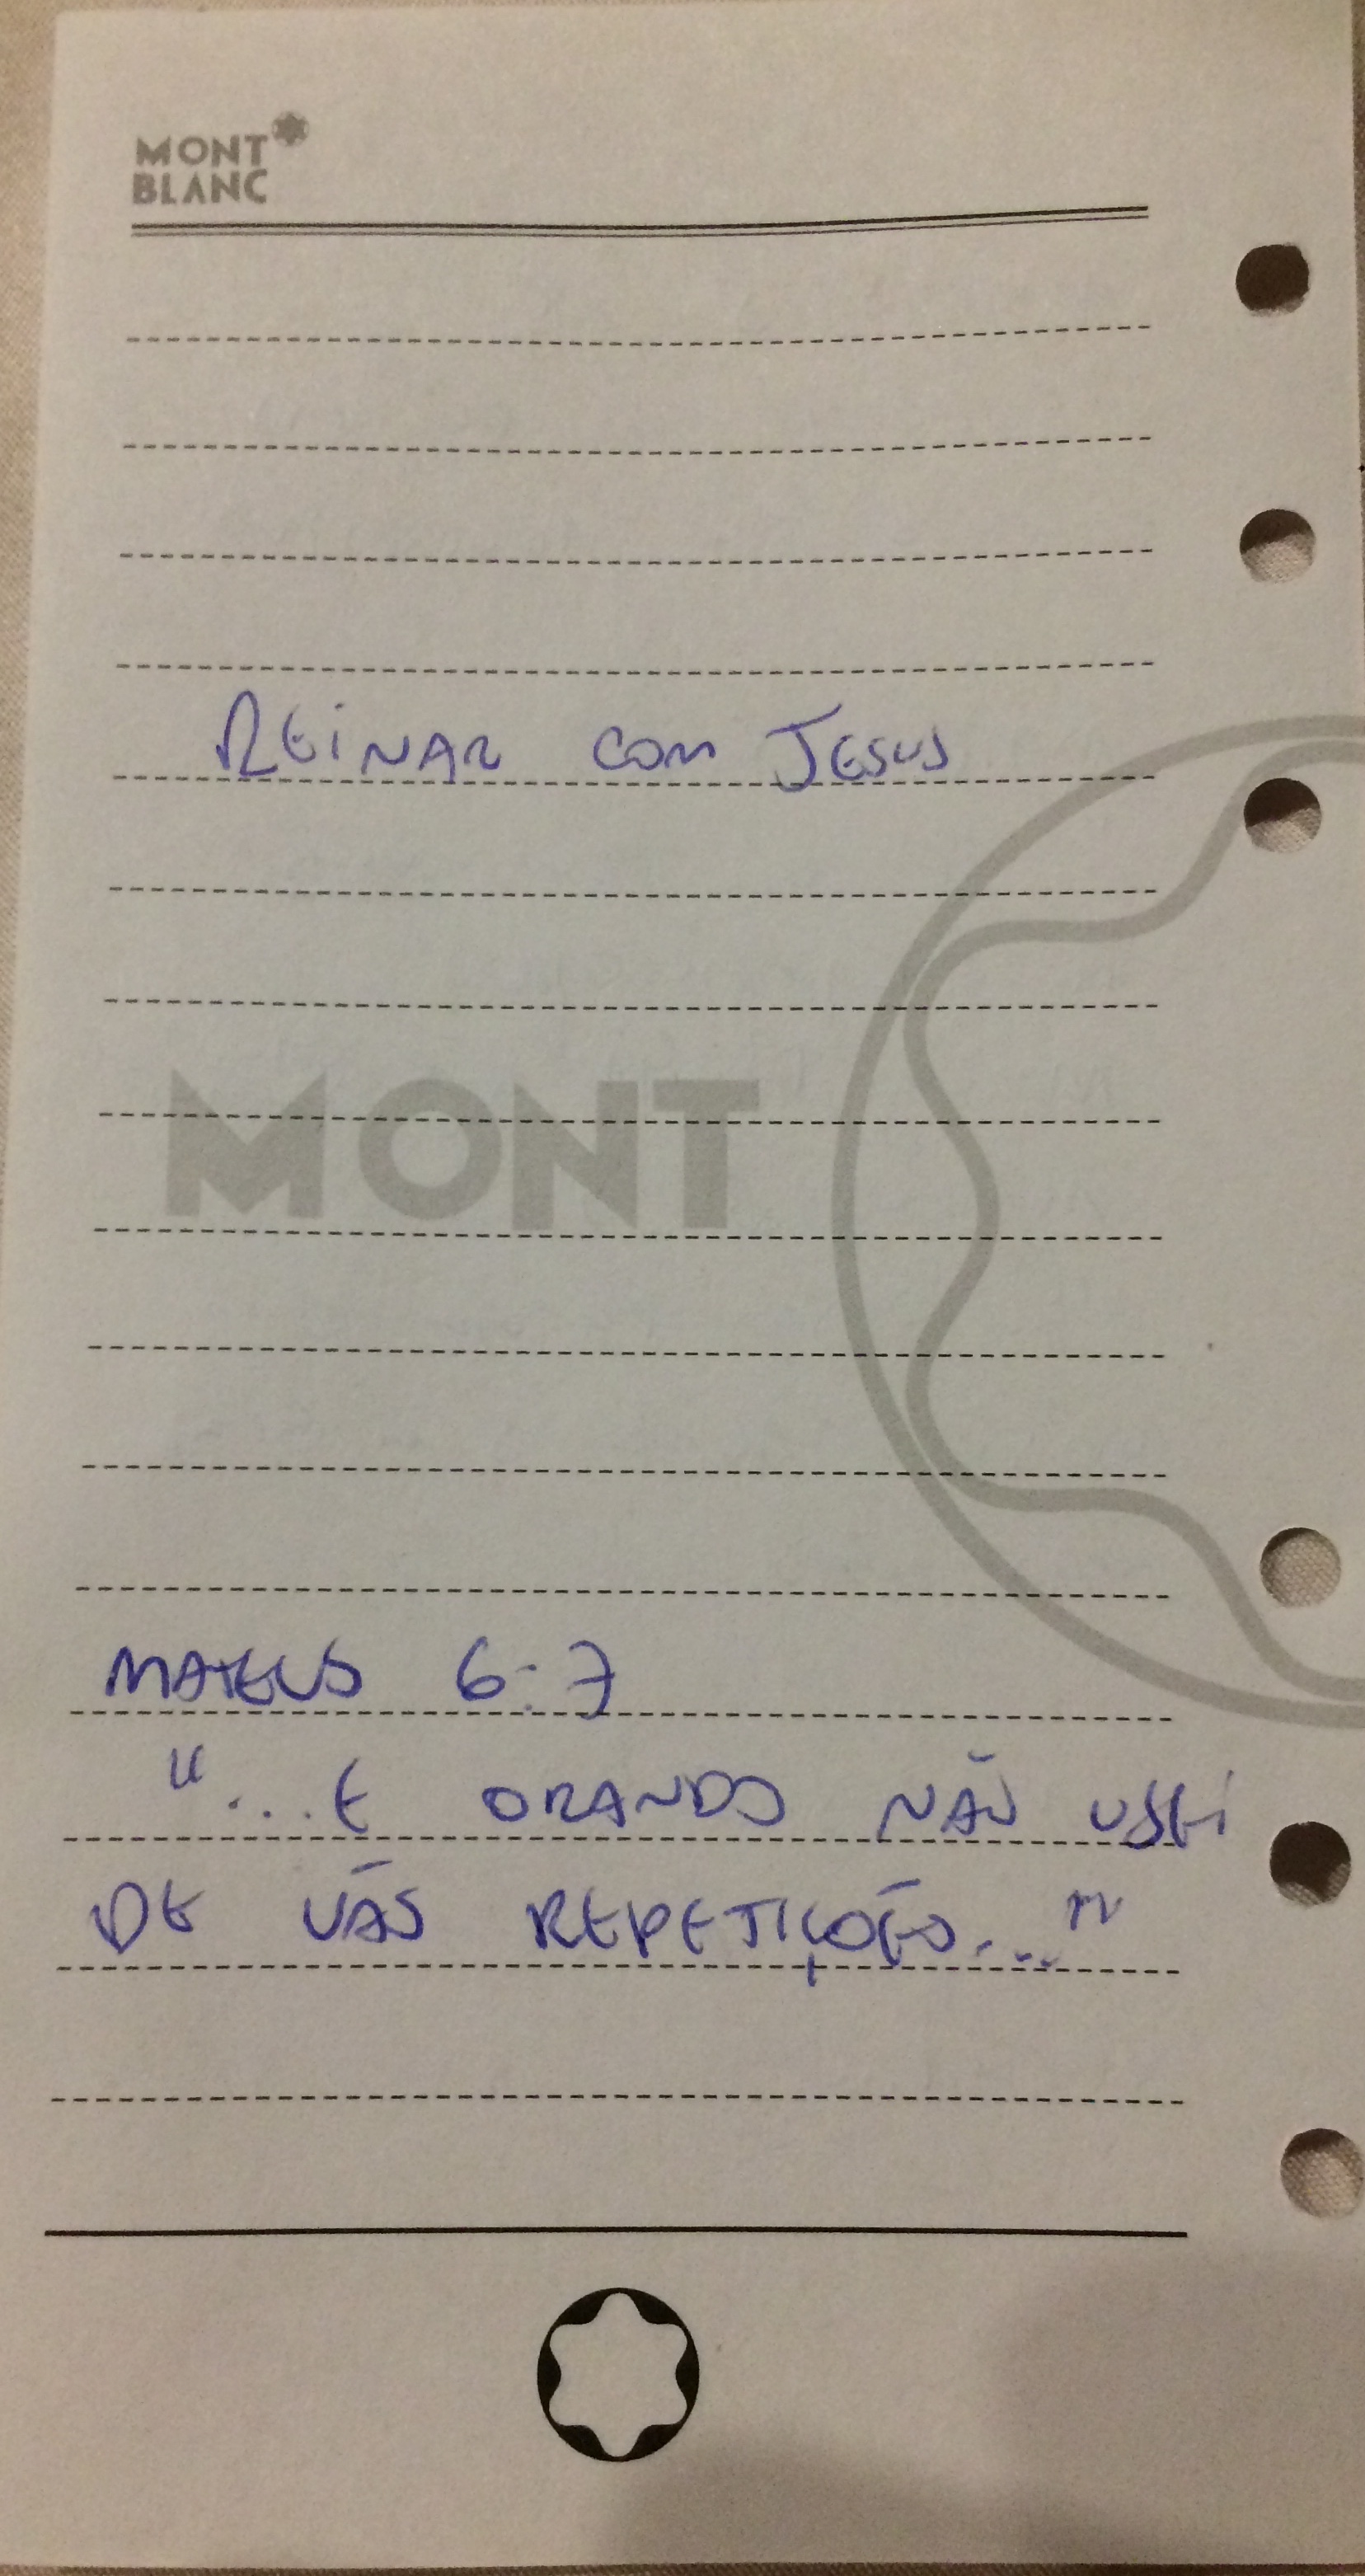 MONT
BLANC
REINAR COM JESUS
MONT
MATEUS 6:7
"...E ORANDO NÃO USEI
DE VÃS REPETIÇÕES..."